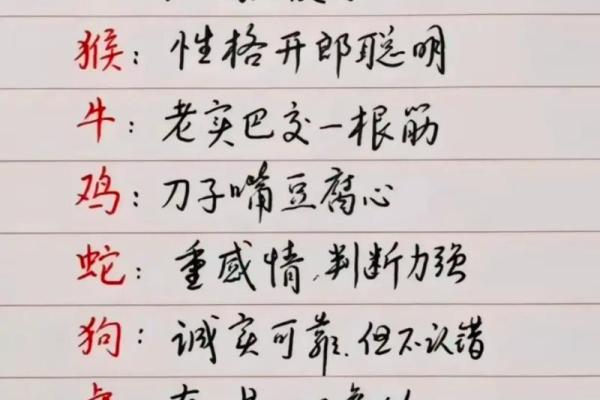 猴：性格开郎聪明
牛：老实巴交一根筋
鸡：刀子嘴豆腐心
蛇：重感情,判断力强
狗：诚实可靠.但不认错